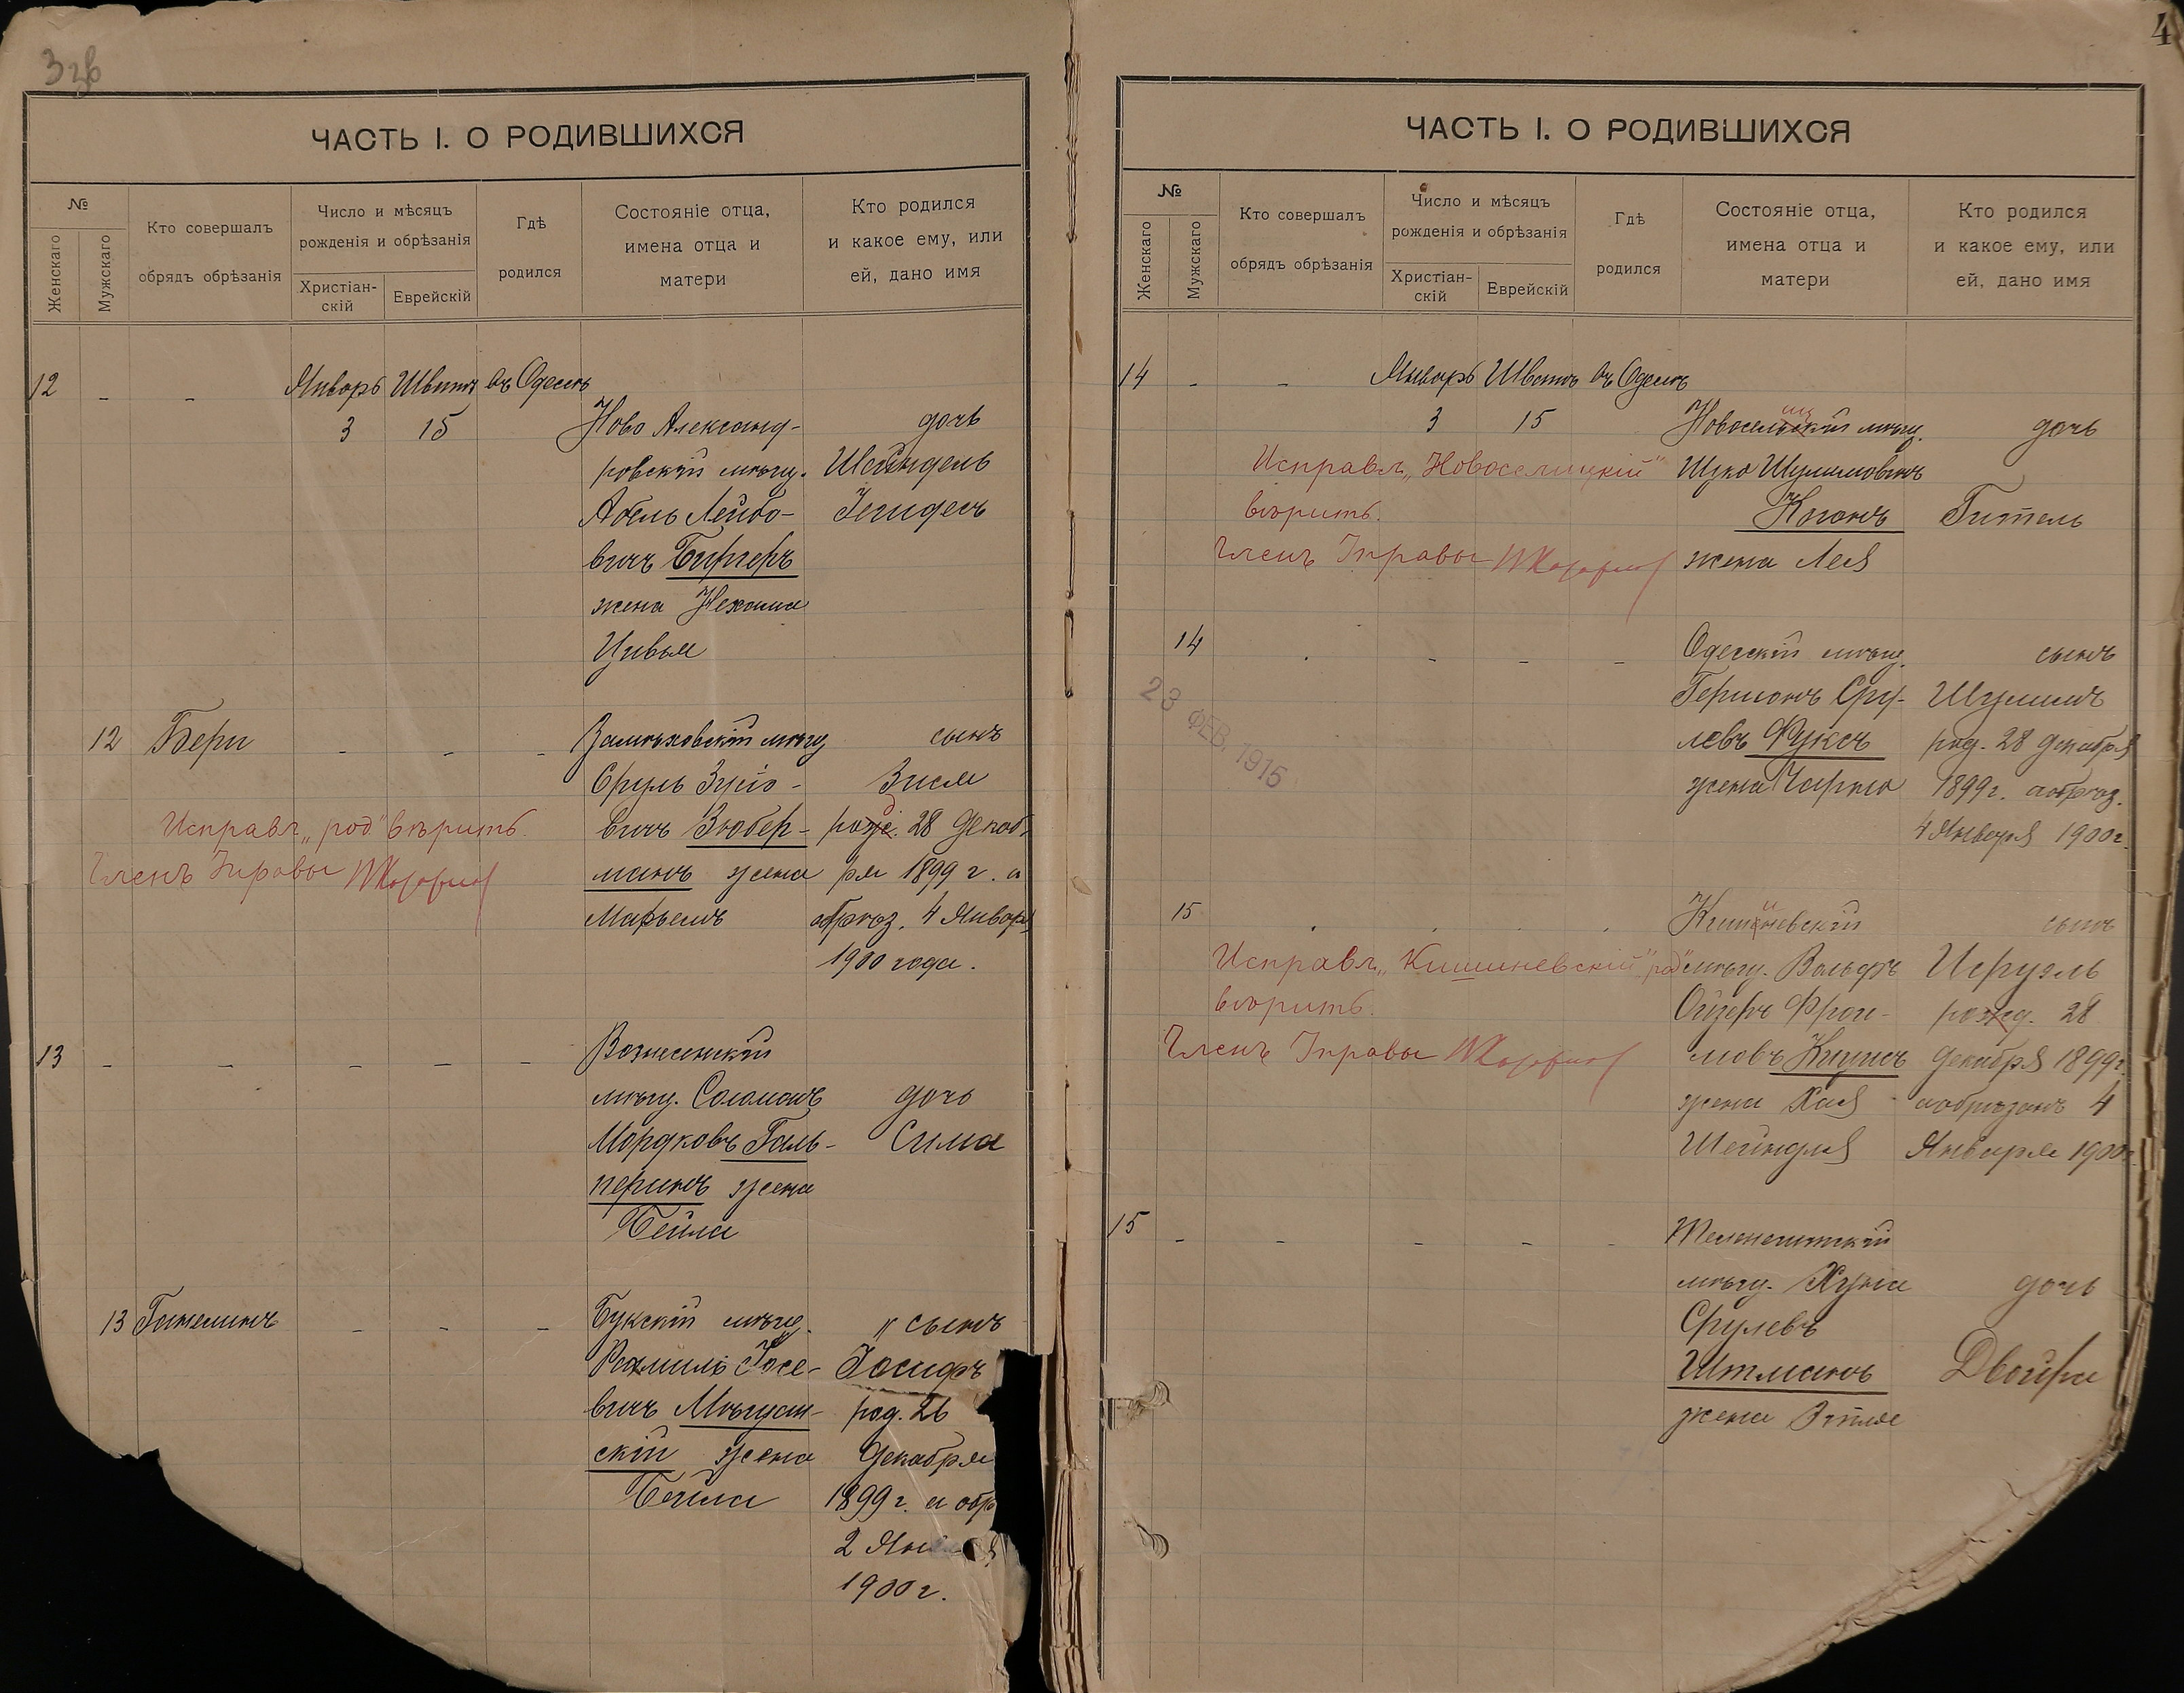 3 зв
ЧАСТЬ I. О РОДИВШИХСЯ
№
Женскаго
Мужскаго
Кто совершалъ
обрядъ обрѣзанія
Число и мѣсяцъ
рожденія и обрѣзанія
Христіан-
скій
Еврейскій
Гдѣ
родился
Состояніе отца,
имена отца и
матери
Кто родился
и какое ему, или
ей, дано имя
12 - - Январь Шватъ въ Одессѣ
3 15 Ново Александ- дочь
ровскій мѣщ. Шейндель
Абель Лейбо-
вичъ Бургеръ
жена Нехама
Цивья
12 Бери - - - Замѣховскій мѣщ сынъ
Сруль Зусіо- Зися
Исправл. „род" вѣрить. вичъ Зюбер- 28 Декаб
Членъ Управы манъ жена ря 1899 г. а
Марьемъ обрѣз. 4 Января
1900 года.
13 - - - - - Вознесенскій
мѣщ. Соломонъ дочь
Мордковъ Галь- Сима
перинъ жена
Бейла
13 - - - Букскій мѣщ. „ сынъ
Іосе- Іосифъ
вичъ Мѣщан- род. 26
скій жена Декабря
Бейла 1899 г. а обр
2
1900 г.
4
ЧАСТЬ I. О РОДИВШИХСЯ
№
Женскаго
Мужскаго
Кто совершалъ
обрядъ обрѣзанія
Число и мѣсяцъ
рожденія и обрѣзанія
Христіан-
скій
Еврейскій
Гдѣ
родился
Состояніе отца,
имена отца и
матери
Кто родился
и какое ему, или
ей, дано имя
14 - - Январь Шватъ въ Одессѣ
3 15 мѣщ. дочь
Исправл. „Новоселицкій" Ицко Шулимовичъ
вѣрить. Коганъ Гитель
Членъ Управы жена Лея
14 - - - Одесскій мѣщ. сынъ
Гершонъ Сру- Шулимъ
левъ Фуксъ род. 28 декабря
23 ФЕВ. 1915
жена Чарна 1899 г. а обрѣз.
4 Января 1900 г.
15 Кишиневскій сынъ
Исправл. „Кишиневскій" „род" мѣщ. Вольфъ Исруэль
вѣрить. Ойзеръ Фрои- 28
Членъ Управы мовъ декабря 1899 г.
жена Хая а обрѣзанъ 4
Шейндля Января 1900 г.
15 - - - - - Теленештскій
мѣщ. Хуна дочь
Срулевъ
Штманъ Двойра
жена Этля